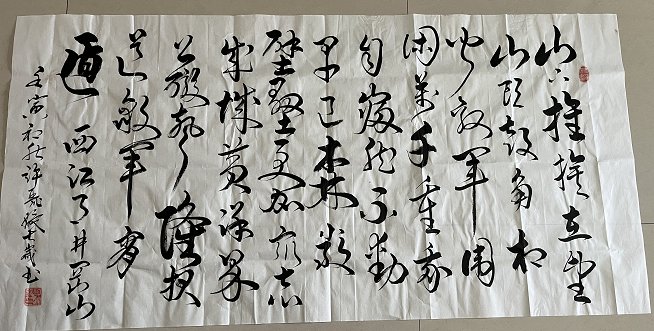 山下旌旗在望
山头鼓角相
闻敌军围
困萬千重我
自巋然不動
早已森嚴
壁壘更加众志
成城黄洋界
上炮声隆报
道敌军宵
遁 西江月井岡山
壬寅初秋許